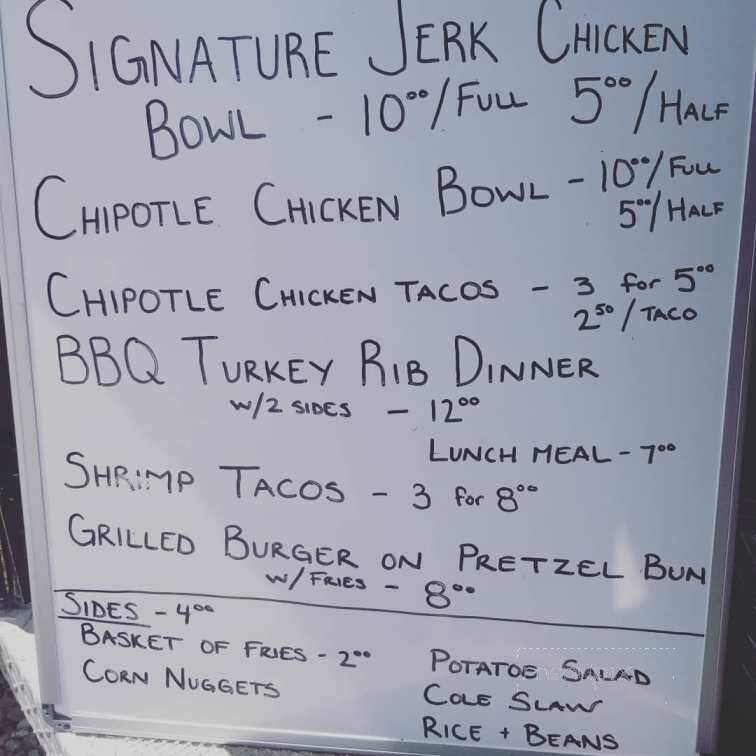 SIGNATURE JERK CHICKEN
BOWL - 10⁰⁰/FULL 5⁰⁰/HALF
CHIPOTLE CHICKEN BOWL - 10⁰⁰/FULL
5⁰⁰/HALF
CHIPOTLE CHICKEN TACOS - 3 for 5⁰⁰
2⁵⁰/TACO
BBQ TURKEY RIB DINNER
W/2 SIDES - 12⁰⁰
LUNCH MEAL - 7⁰⁰
SHRIMP TACOS - 3 for 8⁰⁰
GRILLED BURGER ON PRETZEL BUN
W/ FRIES - 8⁰⁰
SIDES - 4⁰⁰
BASKET OF FRIES - 2⁰⁰
CORN NUGGETS
POTATOE SALAD
COLE SLAW
RICE + BEANS